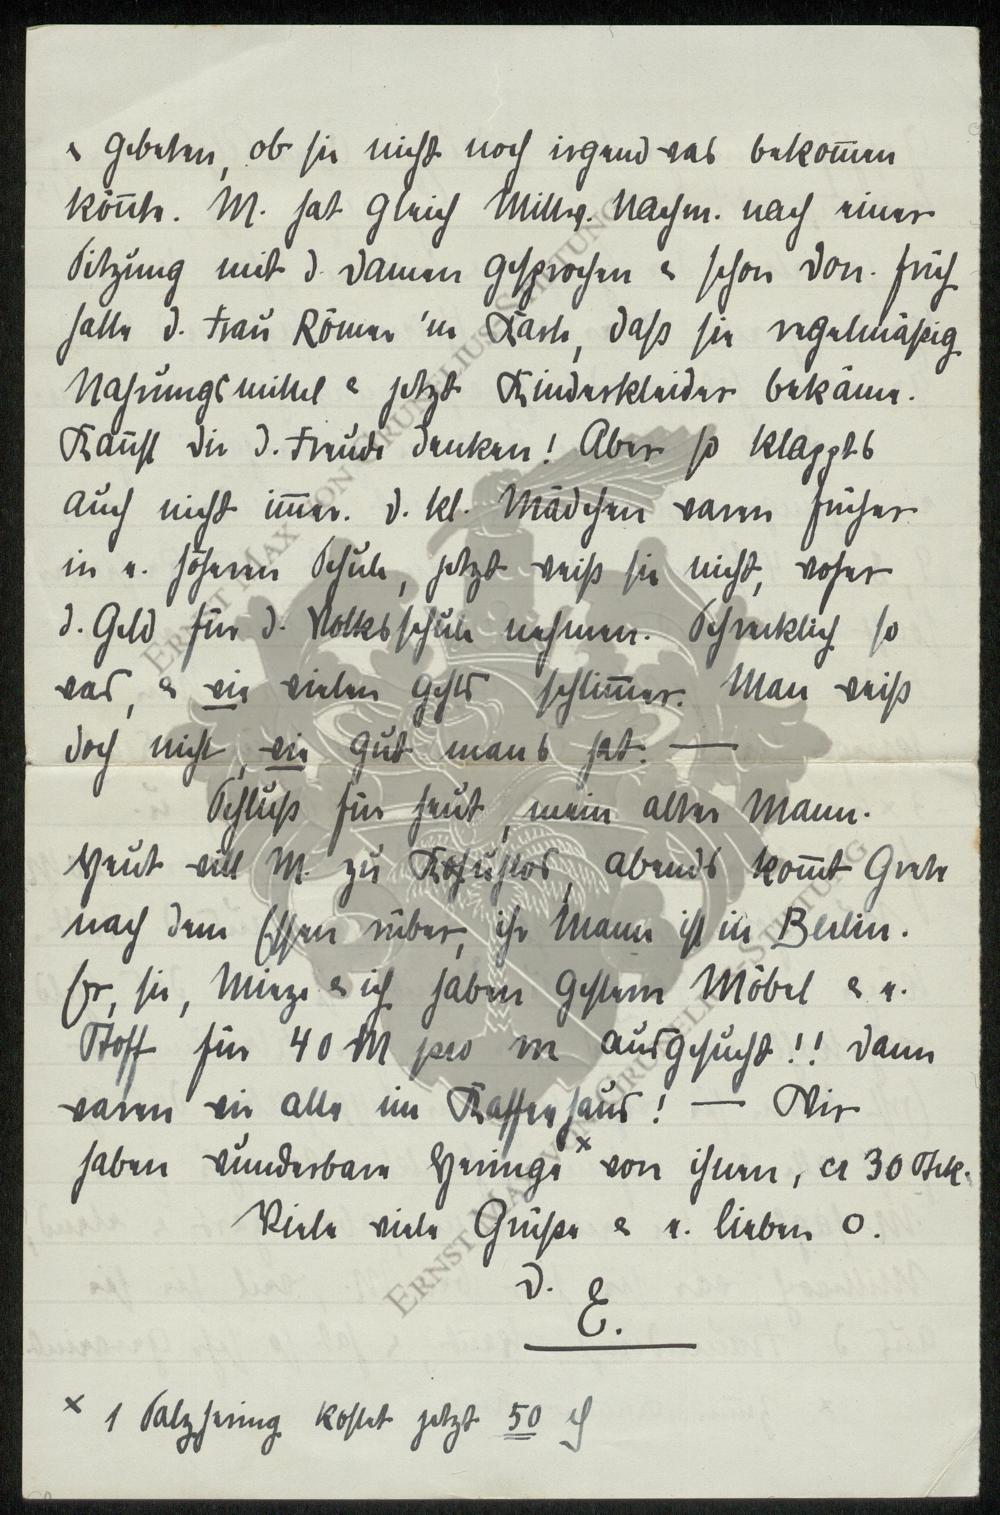 & gebeten, ob sie nicht noch irgend was bekom̅en
kön̅te. M. hat gleich Mittw. Nachm. nach einer
Sitzung mit d. Damen gesprochen & schon Don. früh
hatte d. Frau Römer 'ne Karte, daß sie regelmäßig
Nahrungsmittel & jetzt Kinderkleider bekäme.
Kan̅st Dir d. Freude denken! Aber so klappts
auch nicht im̅er. D. kl. Mädchen waren früher
in e. höheren Schule, jetzt weiß sie nicht, woher
d. Geld für d. Volksschule nehmen. Schrecklich so
was, & wie vielen gehts schlim̅er. Man weiß
doch nicht, wie gut mans hat. —
Schluß für heut, mein alter Mann.
Heut will M. zu, abends kom̅t Grete
nach dem Essen rüber, ihr Mann ist in Berlin.
Er, sie, Mieze & ich haben gestern Möbel & e.
Stoff für 40 M pro m ausgesucht!! Dann
waren wir alle im Kaffeehaus! — Wir
haben wunderbare Heringe x von ihnen, ca 30 Stck.
Viele viele Grüße & e. lieben O.
D.
E.
x 1 Salzhering kostet jetzt 50 ₰
ERNST MAX VON GRUNELIUS-STIFTUNG
ERNST MAX VON GRUNELIUS-STIFTUNG